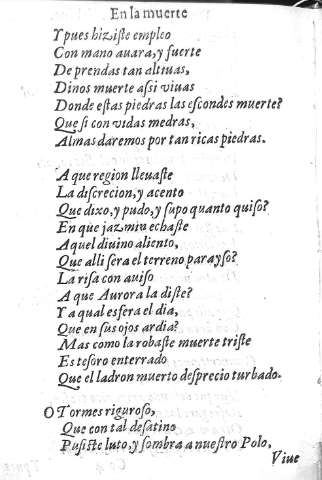 En la muerte
Y pues hiziste empleo
Con mano auara, y fuerte
De prendas tan altiuas,
Dinos muerte assi viuas
Donde estas piedras las escondes muerte?
Que si con vidas medras,
Almas daremos por tan ricas piedras.
A que region lleuaste
La discrecion, y acento
Que dixo, y pudo, y supo quanto quiso?
En que jazmin echaste
Aquel diuino aliento,
Que alli sera el terreno parayso?
La risa con auiso
A que Aurora la diste?
Y a qual esfera el dia,
Que en sus ojos ardia?
Mas como la robaste muerte triste
Es tesoro enterrado
Que el ladron muerto desprecio turbado.
O Tormes riguroso,
Que con tal desatino
Pusiste luto, y sombra a nuestro Polo,
Viue